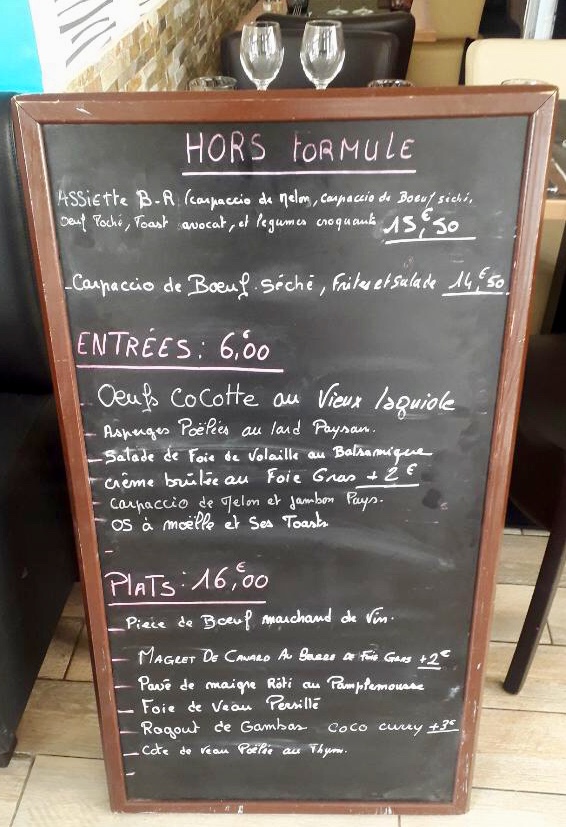 HORS FORMULE
ASSiETTE B-R (carpaccio de Melon, Carpaccio de Boeuf séché,
Oeuf Poché, Toast avocat, et legumes croquants 15,€50
- Carpaccio de Boeuf Séché, Frites et Salade 14,€50
ENTRÉES: 6,00
- Oeufs CoCotte au Vieux laguiole
- Asperges Poêlées au lard Paysan.
- Salade de Foie de Volaille au Balsamique
- crème brûlée au Foie Gras + 2€
- Carpaccio de Melon et jambon Pays.
- OS à moëlle et Ses Toasts
-
PLATS: 16,€00
- Pièce de Boeuf marchand de Vin.
- MAGRET DE CANARD AU BEURRE DE FOIE GRAS +2€
- Pavé de maigre Rôti au Pamplemousse
- Foie de Veau Persillé
- Ragout de Gambas coco curry +3€
- Cote de veau Poêlée au Thym.
-